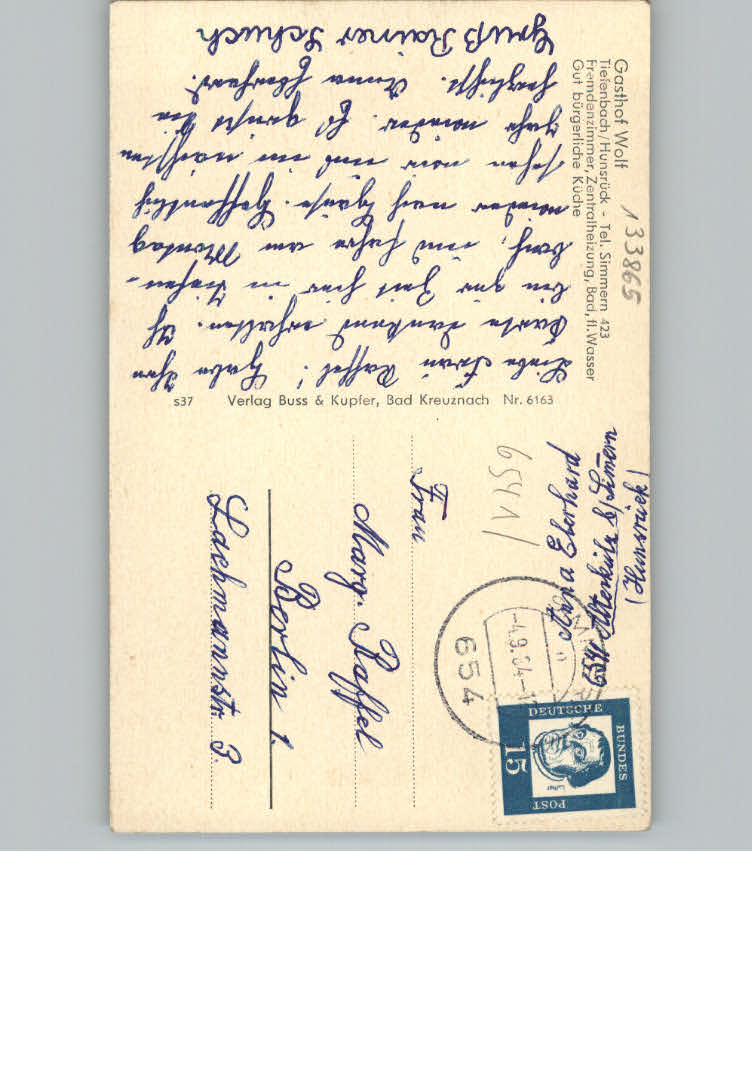 Gasthof Wolf
Tiefenbach/Hunsrück - Tel. Simmern 423
Fremdenzimmer, Zentralheizung, Bad, fl. Wasser
Gut bürgerliche Küche
133865
Liebe Frau Raffel! Habe Ihre
Karte dankend erhalten. Ich
bin zur Zeit hier in Tiefen-
bach, und fahre am Montag
wieder nach Hause. Hoffentlich
sehen wir uns im nächsten
Jahr wieder. Es grüßt Sie
herzlichst. Anna Eberhard.
Gruß Rainer Schuch
s37 Verlag Buss & Kupfer, Bad Kreuznach Nr. 6163
Anna Eberhard
6541 Alterkülz b/ Simmern
(Hunsrück)
6541
654
-4.9.64-
DEUTSCHE
BUNDES
POST
15
Luther
Frau
Marg. Raffel
Berlin 1.
Lachmannstr. 3.